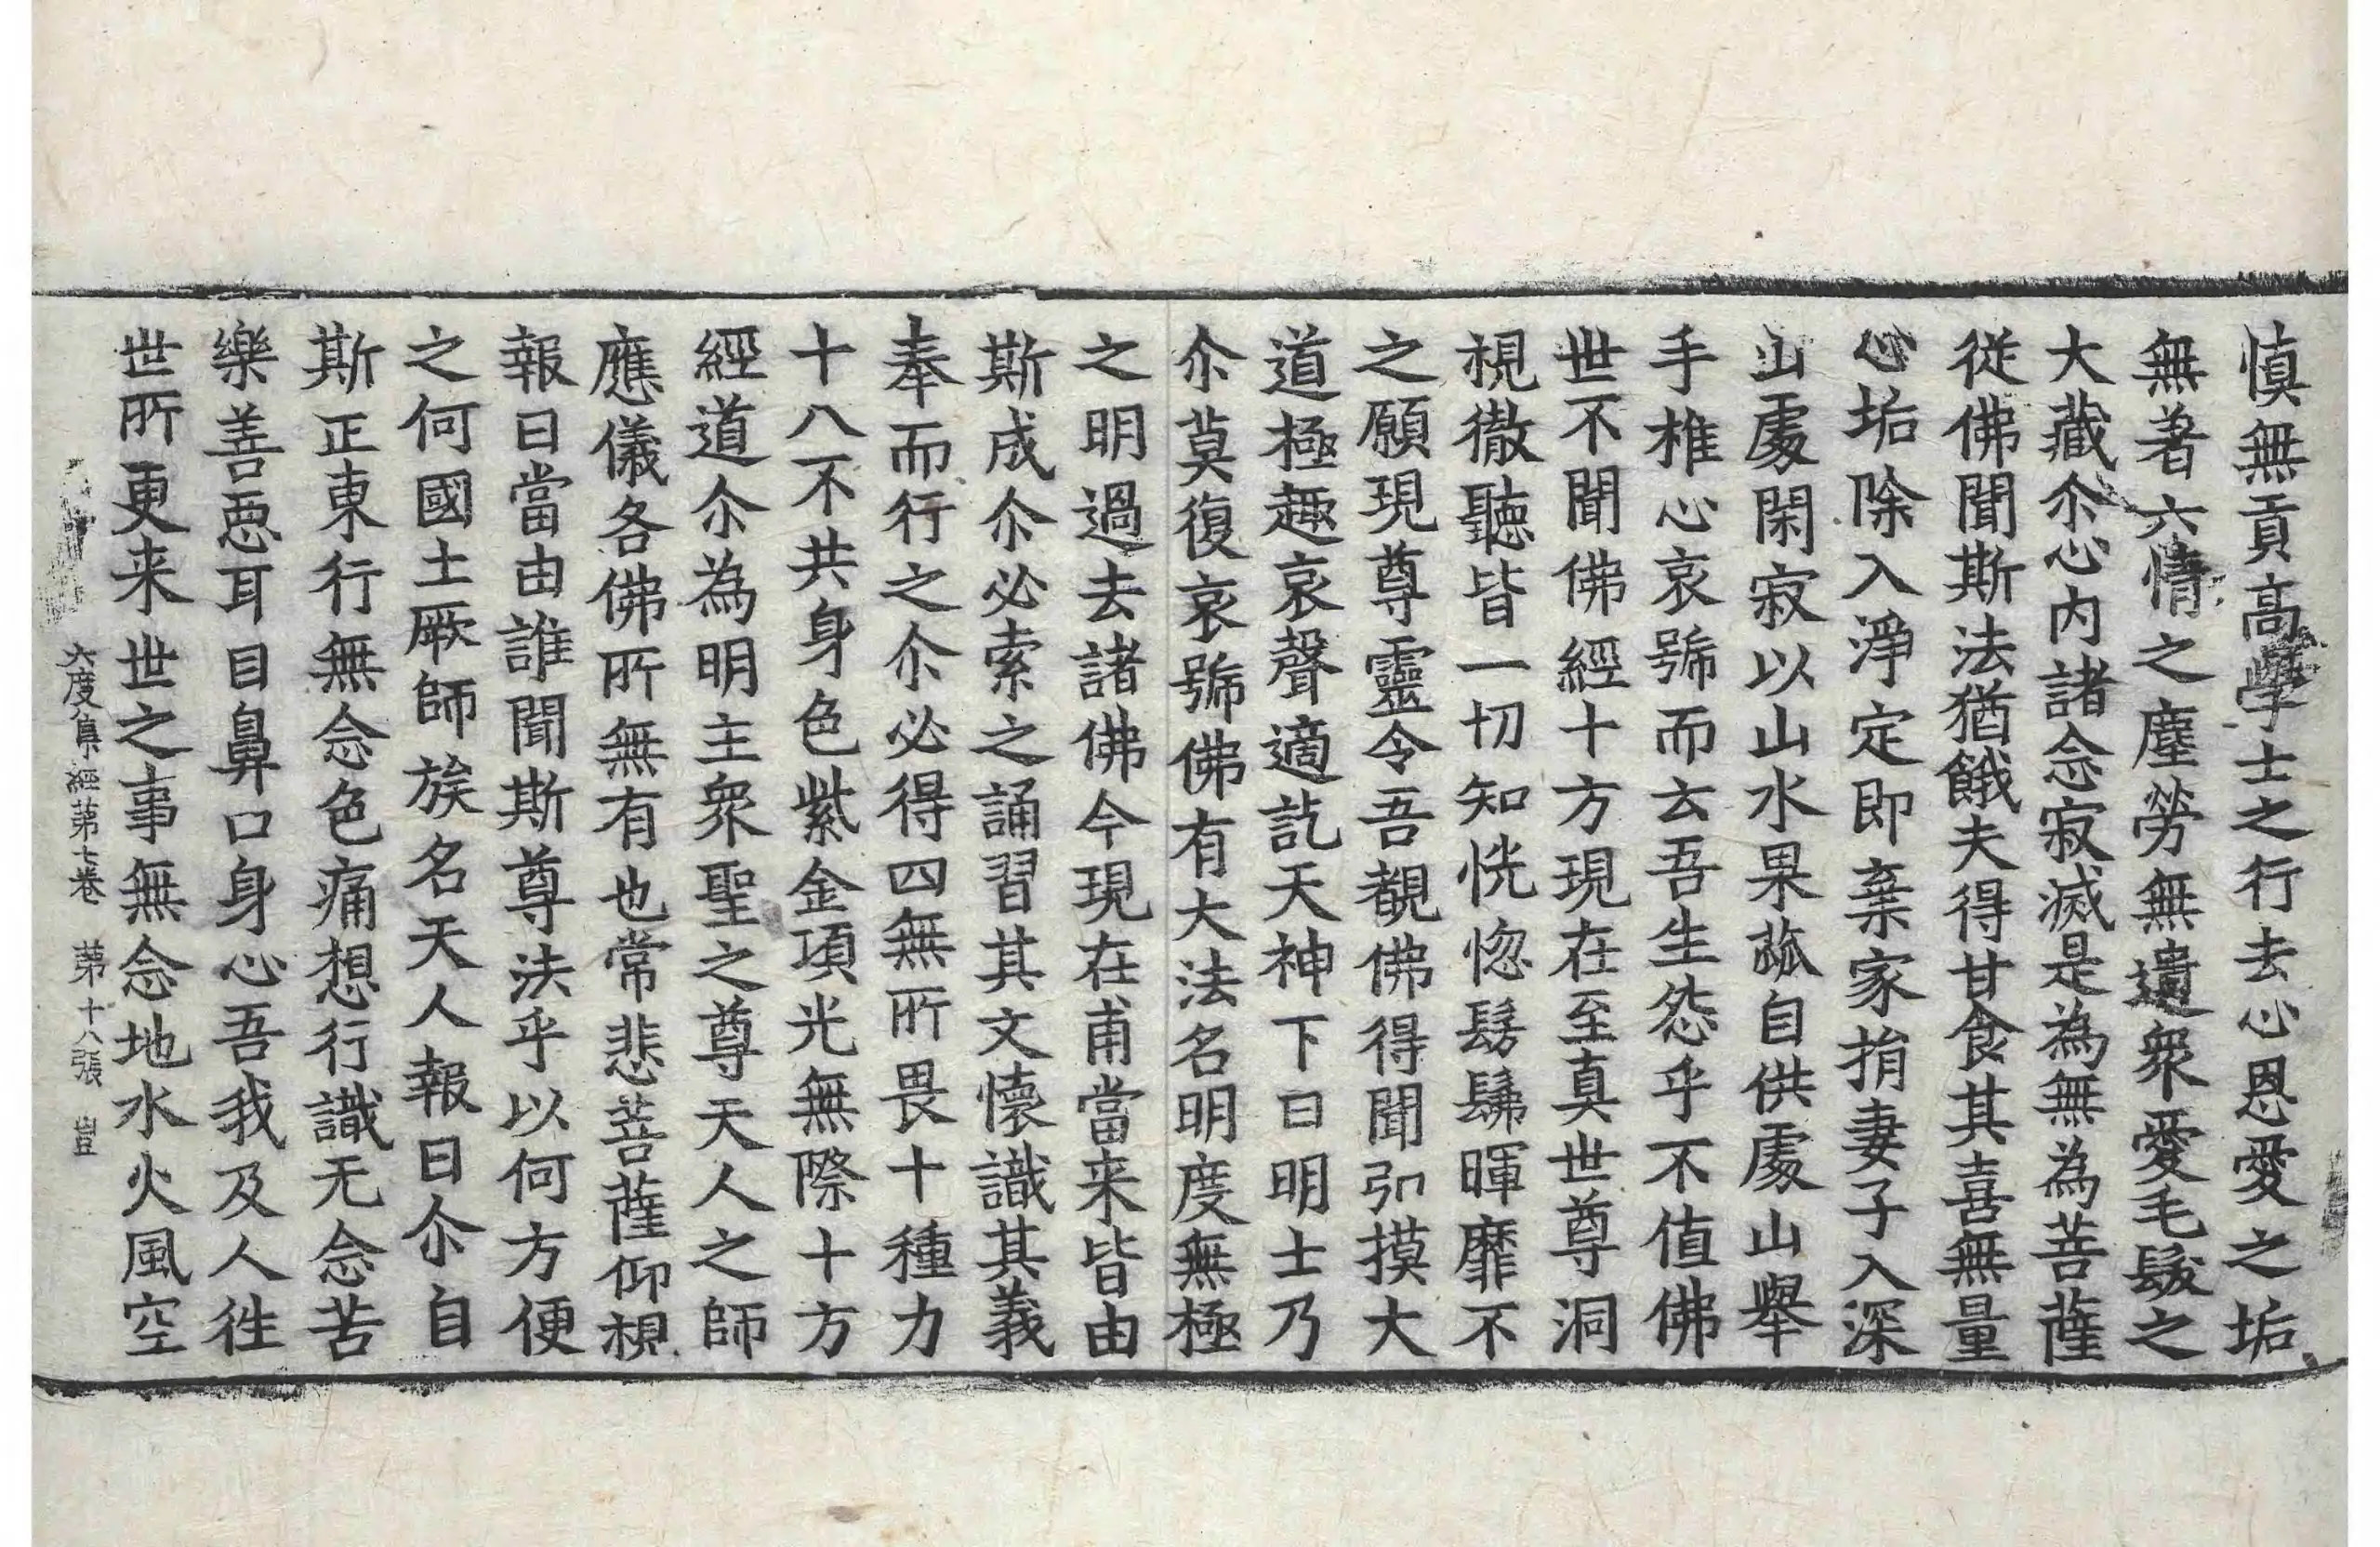 慎無貢高學士之行去心恩愛之垢
無著六情之塵勞無遺衆愛毛髮之
大藏尒心内諸念寂滅是為無為菩薩
從佛聞斯法猶餓夫得甘食其喜無量
心垢除入淨定即棄家捐妻子入深
山處閑寂以山水果蓏自供處山舉
手椎心哀號而云吾生怨乎不值佛
世不聞佛經十方現在至真世尊洞
視徹聽皆一切知恍惚髣髴暉靡不
之願現尊靈令吾覩佛得聞弘摸大
道極趣哀聲適訖天神下曰明士乃
尒莫復哀號佛有大法名明度無極
之明過去諸佛今現在甫當来皆由
斯成尒必索之誦習其文懷識其義
奉而行之尒必得四無所畏十種力
十八不共身色紫金項光無際十方
經道尒為明主衆聖之尊天人之師
應儀各佛所無有也常悲菩薩仰視
報曰當由誰聞斯尊法乎以何方便
之何國土厥師族名天人報曰尒自
斯正東行無念色痛想行識无念苦
樂善惡耳目鼻口身心吾我及人徃
世所更来世之事無念地水火風空
六度集經第七卷　第十八張　豈